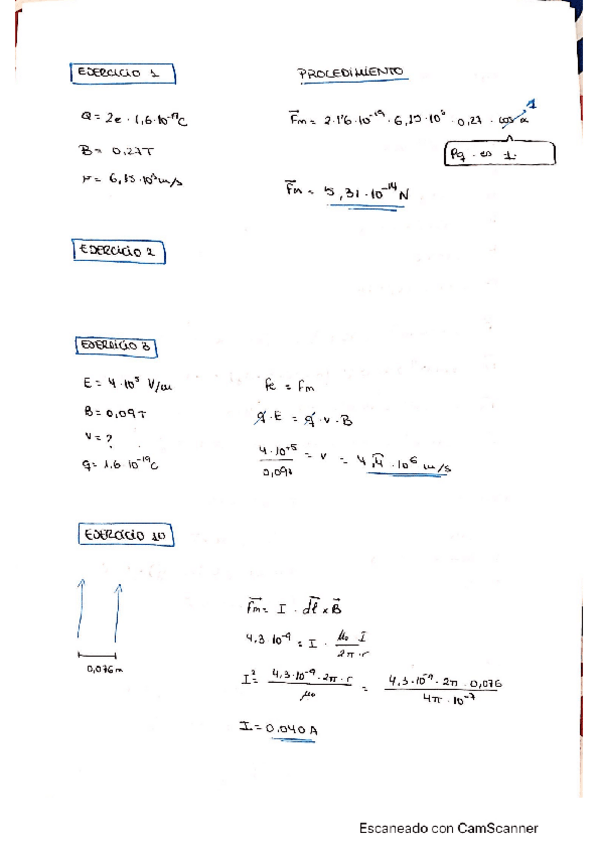 EJERCICIO 1
PROCEDIMIENTO
Q = 2e · 1,6·10⁻¹⁹C
B = 0,27T
V = 6,15·10⁵ m/s
Fm = 2·1'6·10⁻¹⁹ · 6,15·10⁵ · 0,27 · cos α 1
Pq. es 1.
Fm = 5,31·10⁻¹⁴ N
EJERCICIO 2
EJERCICIO 3
E = 4·10⁵ V/m
B = 0,09T
V = ?
q = 1.6·10⁻¹⁹C
Fe = Fm
q·E = q·v·B
4·10⁺⁵ / 0,09 = v = 4,4·10⁶ m/s
EJERCICIO 10
0,076 m
Fm = I · dl × B
4.3 10⁻⁹ = I · μ₀ I / 2π·r
I² = 4,3·10⁻⁹·2π·r / μ₀ = 4,3·10⁻⁹·2π·0,076 / 4π·10⁻⁷
I = 0.040 A
Escaneado con CamScanner